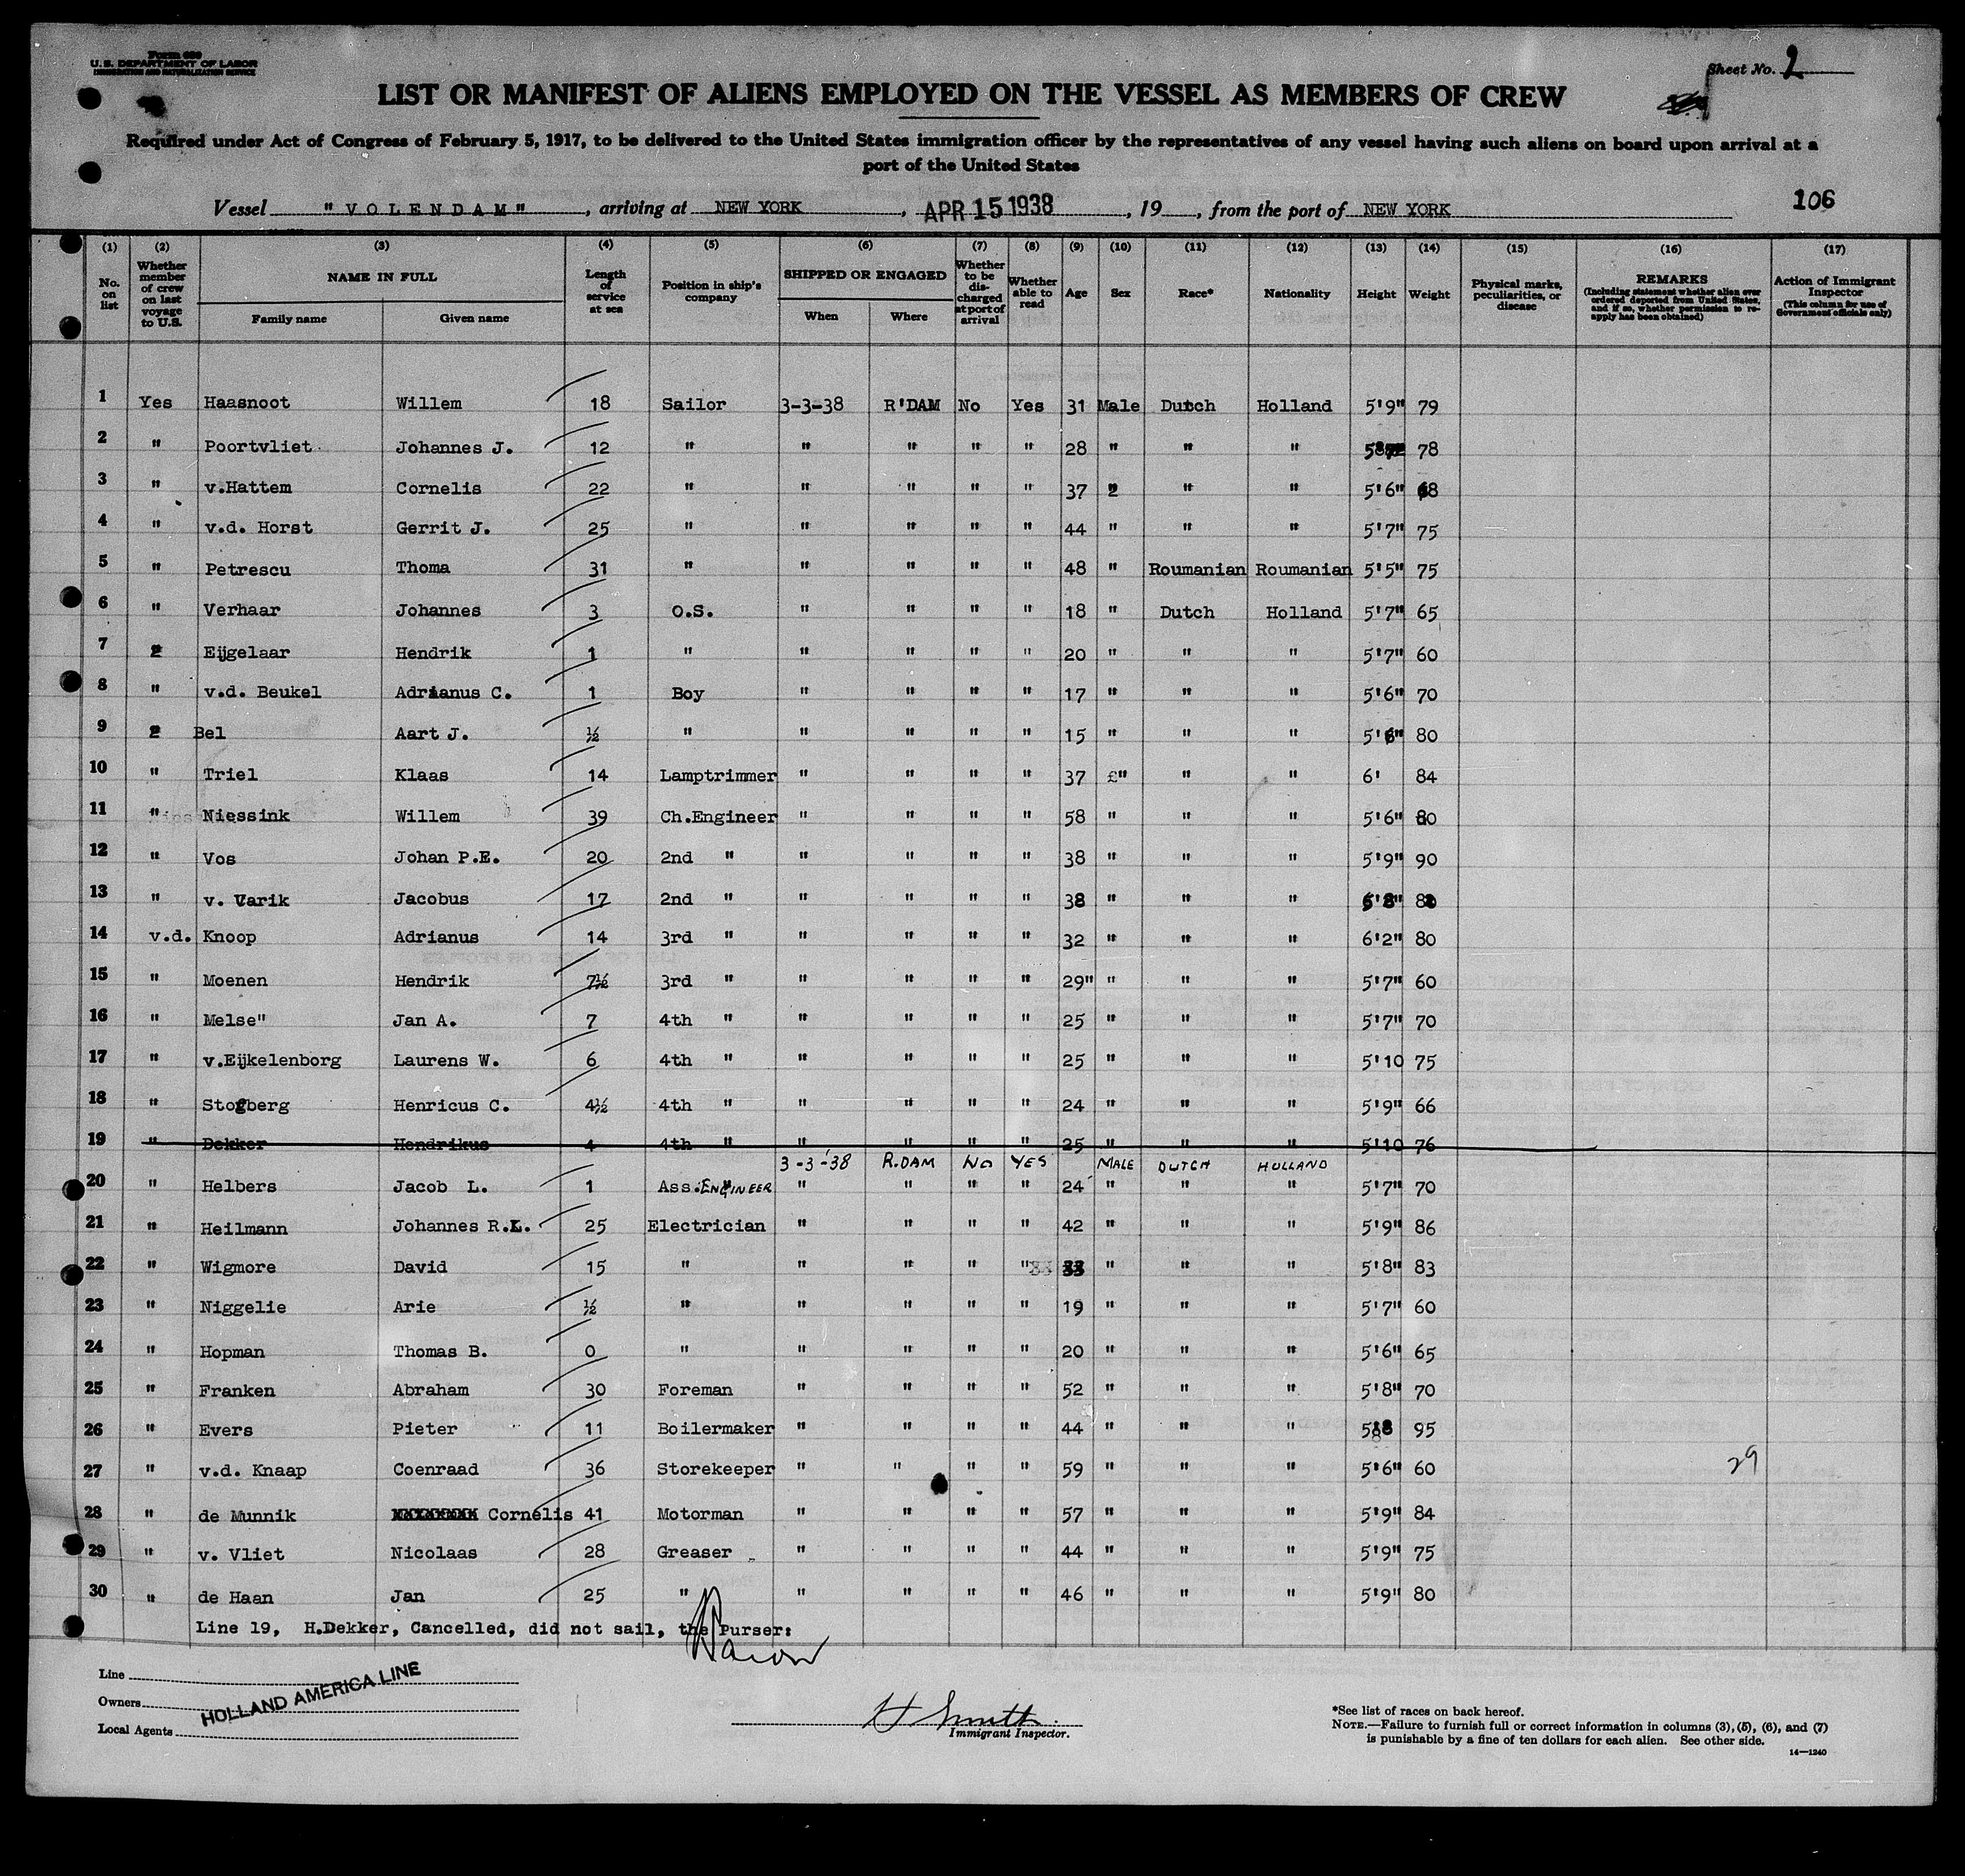 Form 680
U. S. DEPARTMENT OF LABOR
IMMIGRATION AND NATURALIZATION SERVICE
Sheet No. 2
LIST OR MANIFEST OF ALIENS EMPLOYED ON THE VESSEL AS MEMBERS OF CREW
Required under Act of Congress of February 5, 1917, to be delivered to the United States immigration officer by the representatives of any vessel having such aliens on board upon arrival at a
port of the United States
Vessel "VOLENDAM", arriving at NEW YORK, APR 15 1938, 19, from the port of NEW YORK 106
(1) (2) (3) (4) (5) (6) (7) (8) (9) (10) (11) (12) (13) (14) (15) (16) (17)
No. on list Whether member of crew on last voyage to U.S. NAME IN FULL Family name Given name Length of service at sea Position in ship's company SHIPPED OR ENGAGED When Where Whether to be discharged at port of arrival Whether able to read Age Sex Race* Nationality Height Weight Physical marks, peculiarities, or disease REMARKS (Including statement whether alien ever ordered deported from United States, and if so, whether permission to reapply has been obtained) Action of Immigrant Inspector (This column for use of Government officials only)
1 Yes Haasnoot Willem 18 Sailor 3-3-38 R'DAM No Yes 31 Male Dutch Holland 5'9" 79
2 " Poortvliet Johannes J. 12 " " " " " 28 " " " 78
3 " v.Hattem Cornelis 22 " " " " " 37 " " " 5'6" 68
4 " v.d. Horst Gerrit J. 25 " " " " " 44 " " " 5'7" 75
5 " Petrescu Thoma 31 " " " " " 48 " Roumanian Roumanian 5'5" 75
6 " Verhaar Johannes 3 O.S. " " " " 18 " Dutch Holland 5'7" 65
7 " Eijgelaar Hendrik 1 " " " " " 20 " " " 5'7" 60
8 " v.d. Beukel Adrianus C. 1 Boy " " " " 17 " " " 5'6" 70
9 " Bel Aart J. ½ " " " " " 15 " " " 5'6" 80
10 " Triel Klaas 14 Lamptrimmer " " " " 37 " " " 6' 84
11 " Niessink Willem 39 Ch.Engineer " " " " 58 " " " 5'6" 80
12 " Vos Johan P.E. 20 2nd " " " " " 38 " " " 5'9" 90
13 " v. Varik Jacobus 17 2nd " " " " " 38 " " "
14 v.d. Knoop Adrianus 14 3rd " " " " " 32 " " " 6'2" 80
15 " Moenen Hendrik 7½ 3rd " " " " " 29" " " " 5'7" 60
16 " Melse" Jan A. 7 4th " " " " " 25 " " " 5'7" 70
17 " v.Eijkelenborg Laurens W. 6 4th " " " " " 25 " " " 5'10 75
18 " Stogberg Henricus C. 4½ 4th " " " " " 24 " " " 5'9" 66
19 " Dekker Hendrikus 4 4th " " " " " 25 " " " 5'10 76
3-3-'38 R.DAM NO YES MALE DUTCH HOLLAND
20 " Helbers Jacob L. 1 Ass.ENGINEER " " " " 24 " " " 5'7" 70
21 " Heilmann Johannes R.L. 25 Electrician " " " " 42 " " " 5'9" 86
22 " Wigmore David 15 " " " " " 33 " " " 5'8" 83
23 " Niggelie Arie ½ " " " " " 19 " " " 5'7" 60
24 " Hopman Thomas B. 0 " " " " " 20 " " " 5'6" 65
25 " Franken Abraham 30 Foreman " " " " 52 " " " 5'8" 70
26 " Evers Pieter 11 Boilermaker " " " " 44 " " " 95
27 " v.d. Knaap Coenraad 36 Storekeeper " " " " 59 " " " 5'6" 60 29
28 " de Munnik Cornelis 41 Motorman " " " " 57 " " " 5'9" 84
29 " v. Vliet Nicolaas 28 Greaser " " " " 44 " " " 5'9" 75
30 " de Haan Jan 25 " " " " " 46 " " " 5'9" 80
Line 19, H.Dekker, Cancelled, did not sail, the Purser:
Line
Owners
Local Agents
HOLLAND AMERICA LINE
H Smith
Immigrant Inspector.
*See list of races on back hereof.
NOTE.—Failure to furnish full or correct information in columns (3), (5), (6), and (7)
is punishable by a fine of ten dollars for each alien. See other side.
14—1240